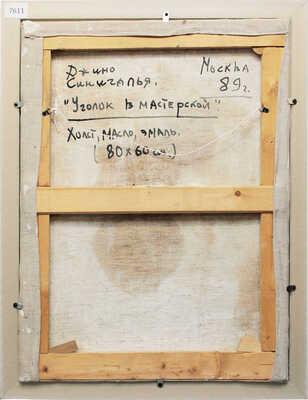 7611
Джино
Синигалья.
Москва
89г.
"Уголок в мастерской"
Холст, масло, эмаль.
(80x60 см.)